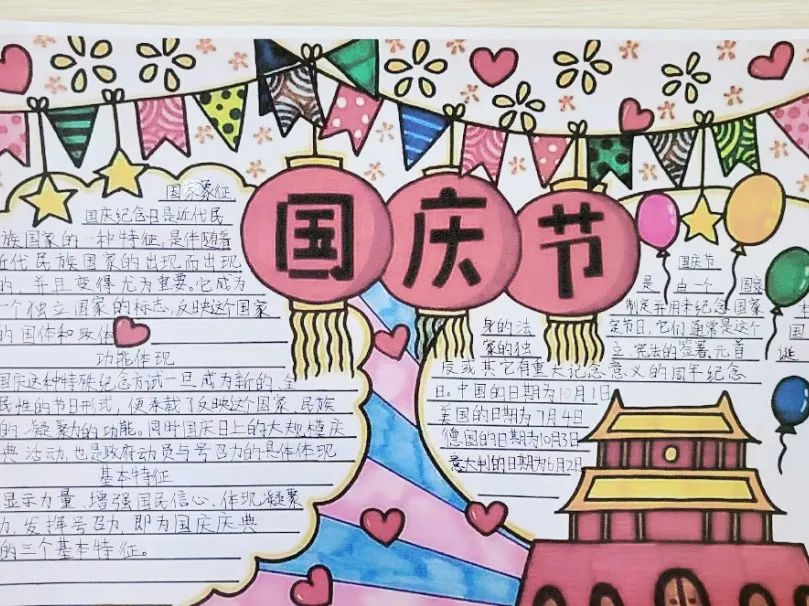 国庆节
国家象征
国庆纪念日是近代民
族国家的一种特征,是伴随着
近代民族国家的出现而出现
的,并且变得尤为重要。它成为
一个独立国家的标志,反映这个国家
的国体和政体
功能体现
国庆这种特殊纪念方式一旦成为新的、全
民性的节日形式,便承载了反映这个国家、民族
的凝聚力的功能。同时国庆日上的大规模庆
典活动,也是政府动员与号召力的具体体现
基本特征
显示力量、增强国民信心、体现凝聚
力、发挥号召力,即为国庆庆典
的三个基本特征。
国庆节
是 由一个 国家
制定并用来纪念国家
身的法 定节日,它们通常是这个 国
家的独 立、宪法的签署、元首 诞
辰或其它有重大记念意义的周年纪念
日。中国的日期为10月1日
美国的日期为7月4日
德国的日期为10月3日
意大利的日期为6月2日